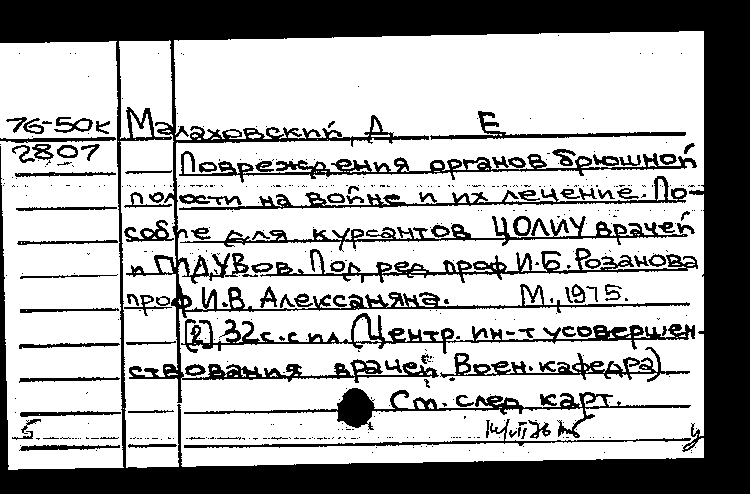 76-50к Малаховский, Д Е
2807 Повреждения органов брюшной
полости на войне и их лечение. По-
собие для курсантов ЦОЛИУ врачей
и ГИДУВов. Под ред проф И.Б. Розанова
проф И.В. Алексаняна. М., 1975.
[2], 32 с. с ил. (Центр. ин-т усовершен-
ствования врачей. Воен. кафедра)
Ст. след карт.
5 у